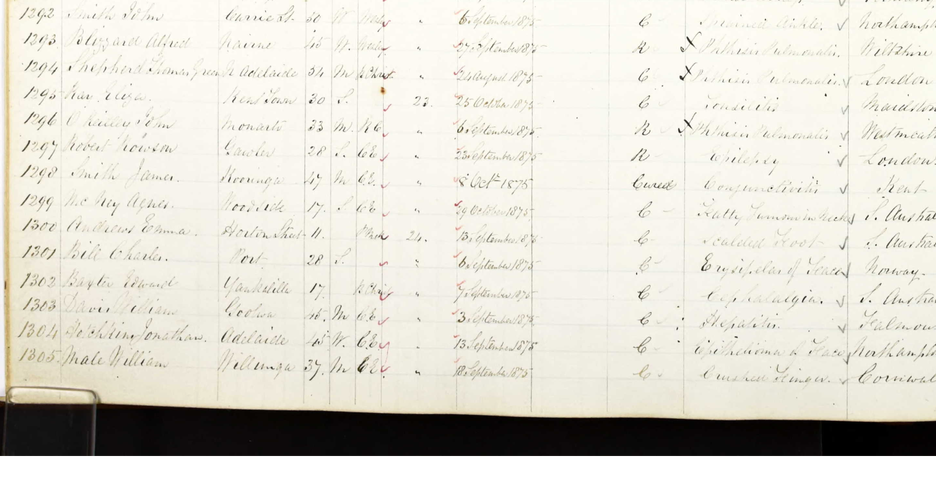 1292 Smith John Currie St. 30 W Wesly " 6 September 1875 C Sprained Ankle. Northampt
1293 Blizzard Alfred Nairne 45 W. Wesly " 27 September 1875 R Phthisis Pulmonalis. Wiltshire
1294 Shepherd Thomas Green N Adelaide 34 M B Christ. " 24 August 1875 C Phthisis Pulmonalis London
1295 Eliza. Kent Town 30 S. 23. 25 October 1875 C Tonsilitis Maidston
1296 O'Reilley John Monarto 33 M. R C " 6 September 1875 R Phthisis Pulmonalis Westmeath
1297 Robert Howson Gawler 28 S. C E " 22 September 1875 R Epilepsy London.
1298 Smith James. Kooringa 47 M C E. " 8 Oct 1875 Cured Conjunctivitis Kent
1299 Mc Key Agnes. Woodside 17. S C E " 29 October 1875 C Fatty Tumour in Neck S. Austral
1300 Andrews Emma. Horton Street 11. 24. 13 September 1875 C Scalded Foot S. Austra
1301 Bill Charles. Port 28 S " 6 September 1875 C Erysipelas of Face Norway.
1302 Baxter Edward Yankalilla 17. B Chris " 7 September 1875 C Cephalalgia. S. Austra
1303 Davis William Goolwa 46. M C E " 3 September 1875 C Hepatitis. Falmou
1304 Hotchkins Jonathan. Adelaide 45 W. C E " 13 September 1875 C Epithelioma of Face Northampt
1305 Male William Willunga 37. M C E. " 18 September 1875 C Crushed Finger. Cornwal